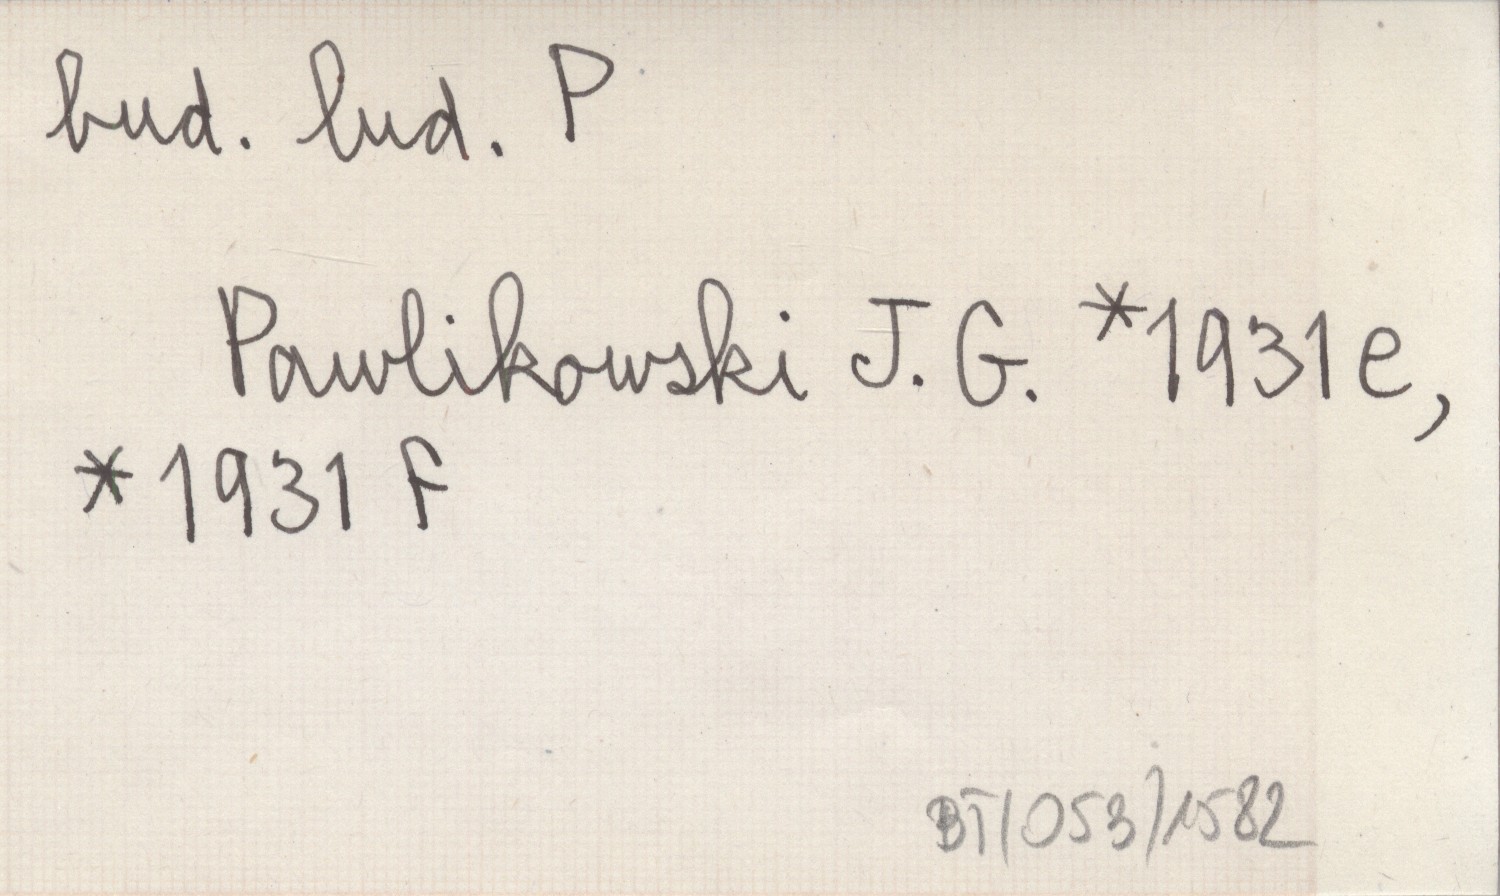 bud. lud. P
Pawlikowski J. G. *1931 e,
*1931 f
BT/053/1582